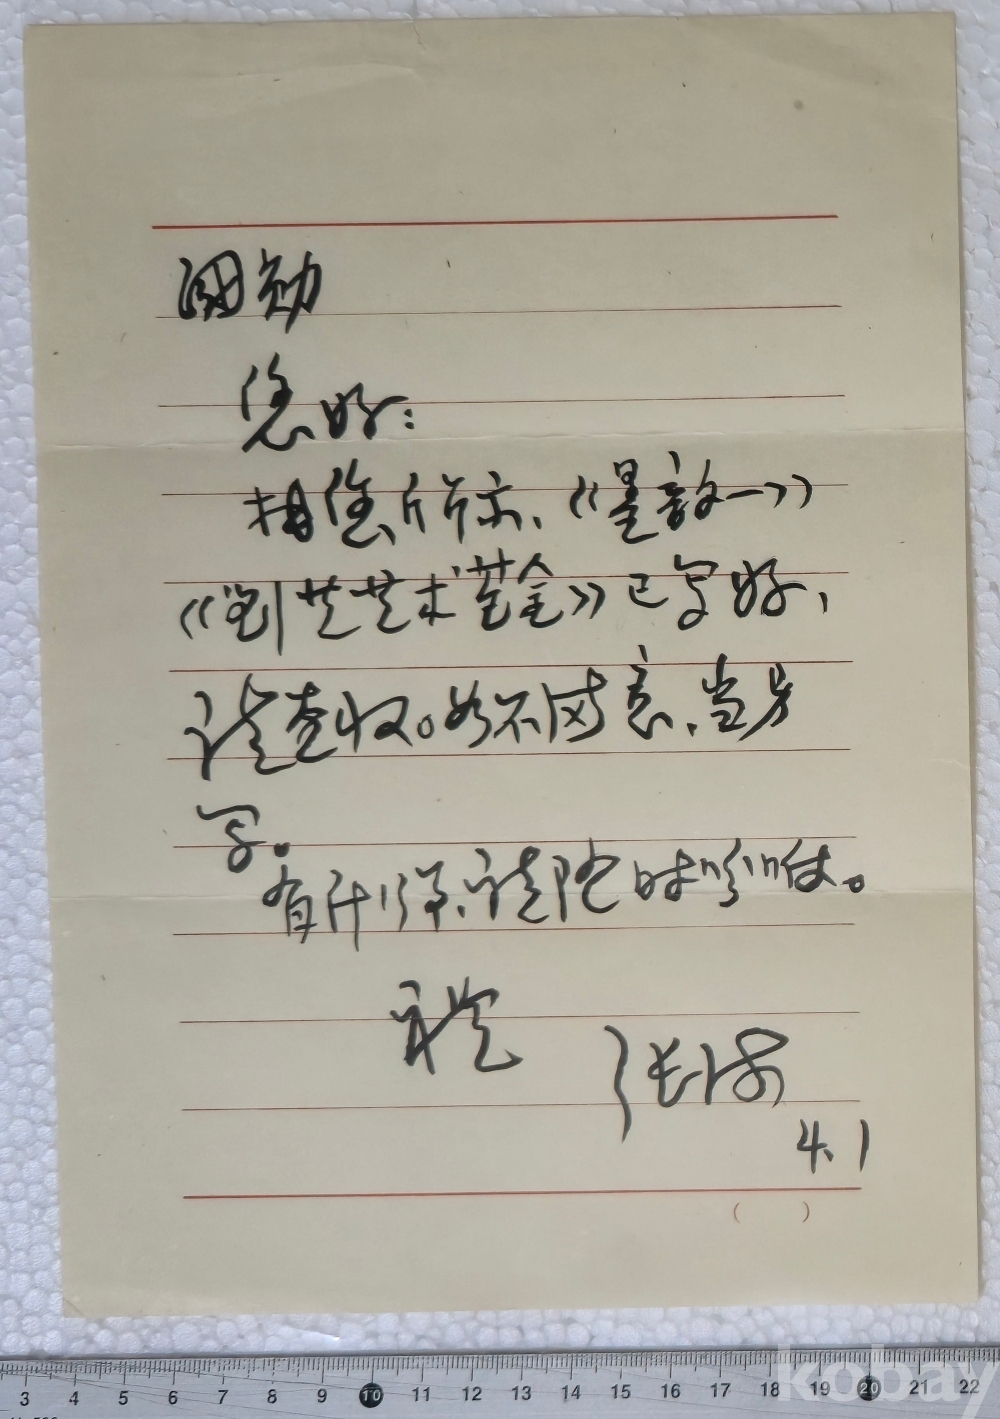 国勋
您好：
按您所示、《星韵一》
《刘芝艺术基金》已写好，
请查收。如不满意、当另
写。
有什么事、请随时吩咐。
礼
张
4.1
(    )
3 4 5 6 7 8 9 10 11 12 13 14 15 16 17 18 19 20 21 22
kobay